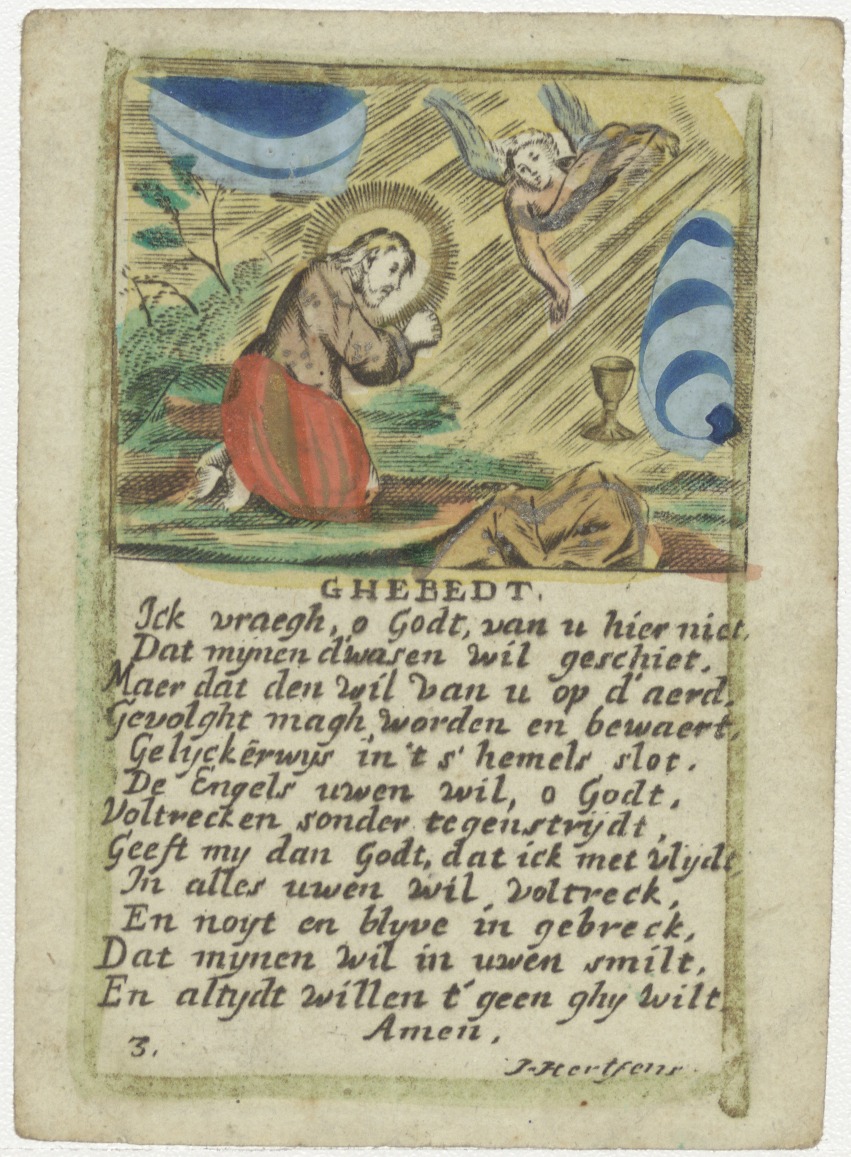 GHEBEDT.
Ick vraegh, o Godt, van u hier niet,
Dat mynen dwasen wil geschiet,
Maer dat den wil van u op d'aerd,
Gevolght magh worden en bewaert,
Gelyckērwys in't s' hemels slot.
De Engels uwen wil, o Godt,
Voltrecken sonder tegenstrydt,
Geeft my dan Godt, dat ick met vlydt,
In alles uwen wil voltreck,
En noyt en blyve in gebreck,
Dat mynen wil in uwen smilt,
En altydt willen t'geen ghy wilt.
Amen,
3.
J. Hertsens